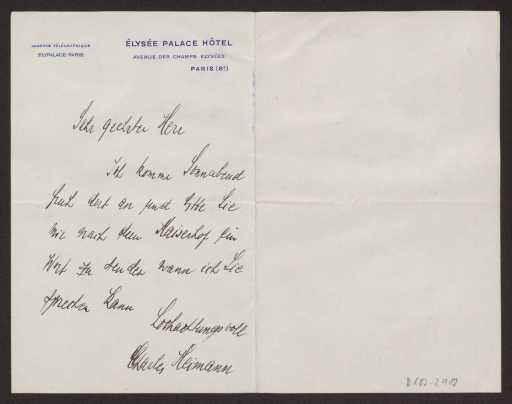 ADRESSE TÉLÉGRAPHIQUE
ÉLYPALACE-PARIS
ÉLYSÉE PALACE HÔTEL
AVENUE DES CHAMPS ELYSÉES
PARIS (8E)
Sehr geehrter Herr
Ich komme Sonnabend
früh dort an und bitte Sie
mir nach dem Kaiserhof ein
Wort zu senden wann ich Sie
sprechen kann
Hochachtungsvoll
Charles Heimann